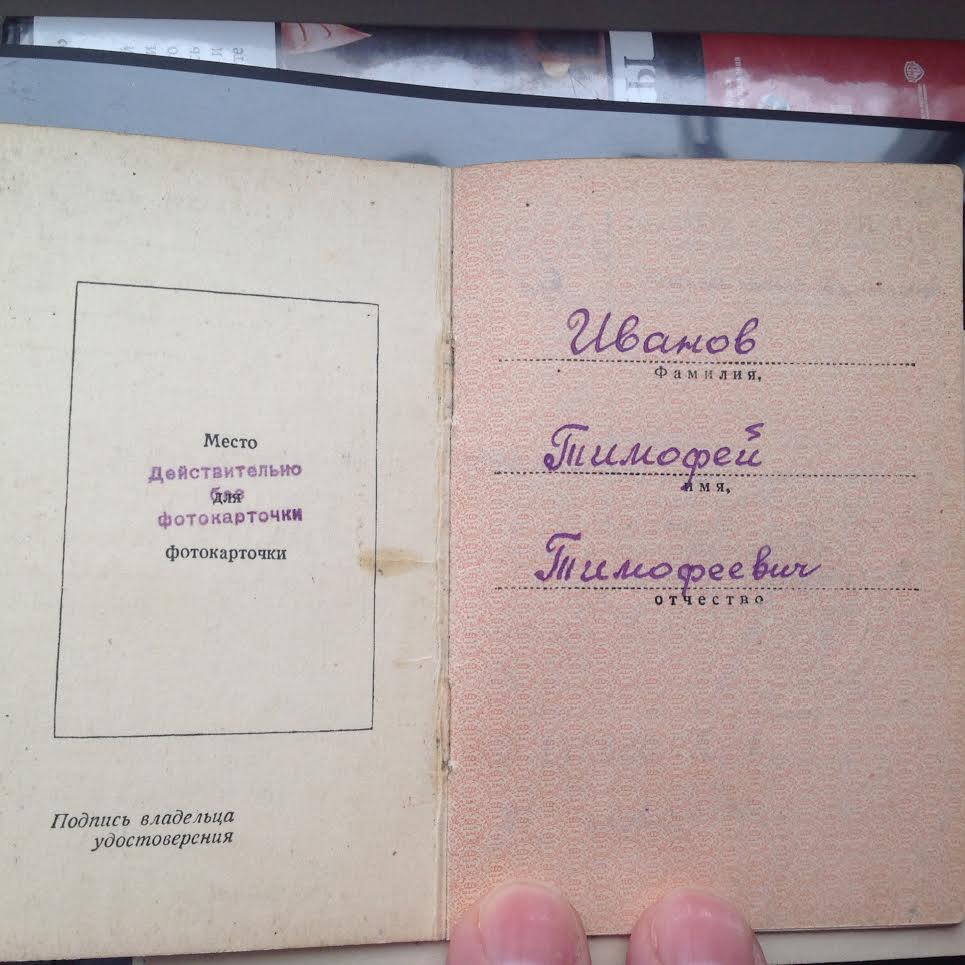 Место
Действительно
без
для
фотокарточки
фотокарточки
Подпись владельца
удостоверения
Иванов
Фамилия,
Тимофей
имя,
Тимофеевич
отчество